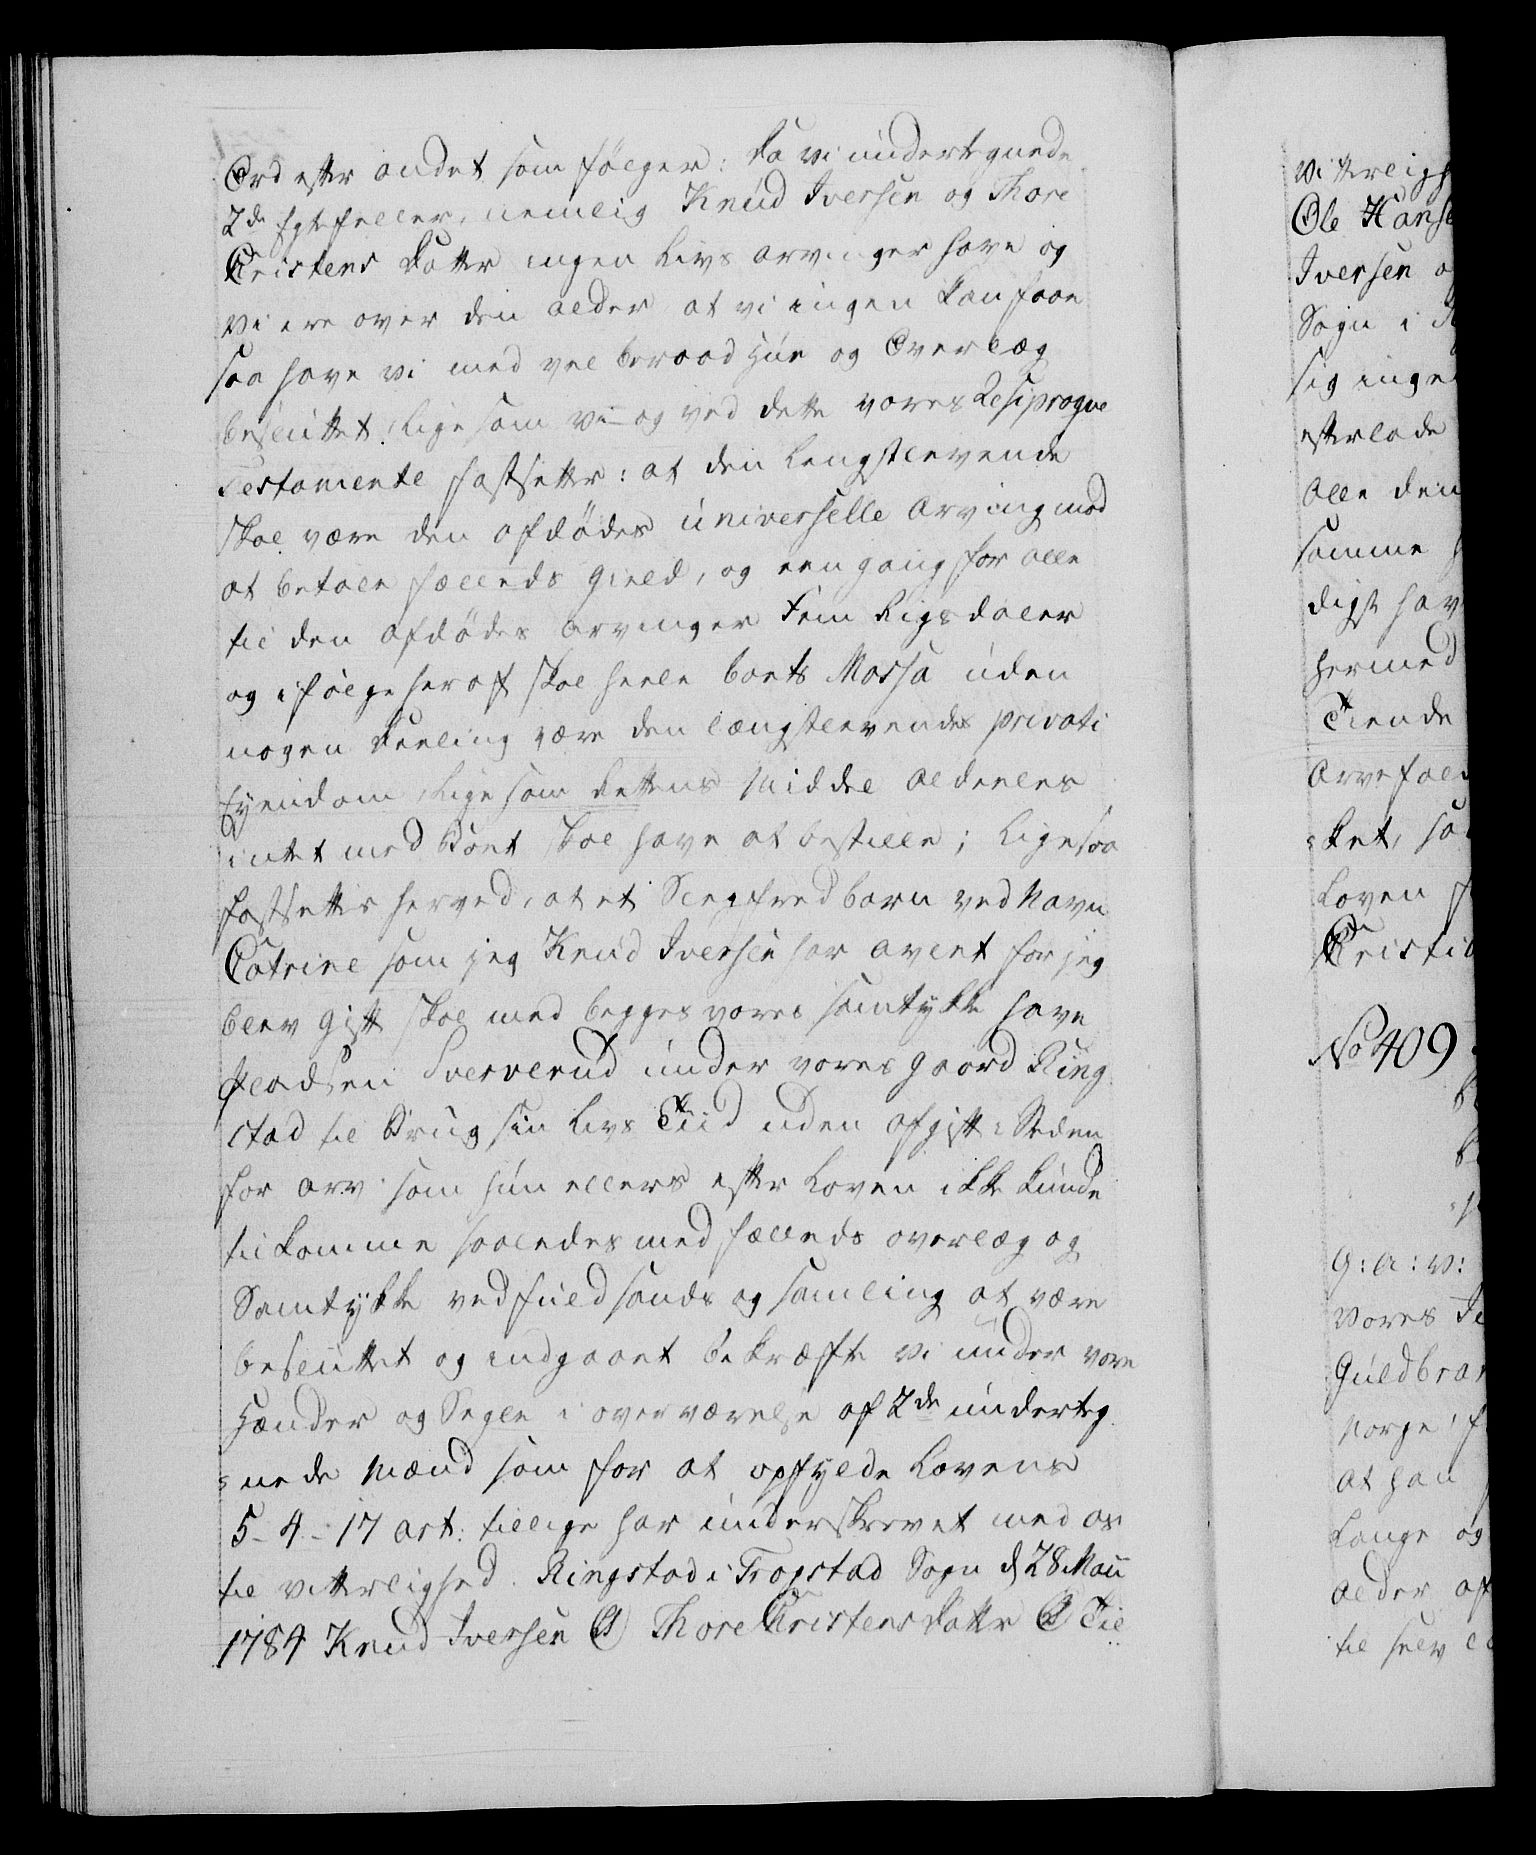 Ord efter andet som følger: Da vi undertegnede
2de Egtefeller, nemlig Knud Iversen og Thore
Cristens Datter ingen Livs arvinger have og
vi ere over den alder at vi ingen kan faae
saa have vi med vel beraad Hue og Overlæg
besluttet, ligesom vi og ved dette vores Resiproque
Testamente fastsetter: at den lengstlevende
skal være den afdødes universelle Arving mod
at betale fælleds gield, og een gang for alle
til den afdødes arvinger Fem Rigsdaler
og ifølge heraf skal heele boets Massa uden
nogen deeling være den længstlevendes privati
Eyendom, ligesom Rettens Middel aldeeles
intet med Boet skal have at bestille; ligesaa
fastsettes herved, at et Slegfredbarn ved Navn
Catrine som jeg Knud Iversen har avlet før jeg
blev Gift skal med begges vores samtykke have
Pladsen Sververud under vores gaard Ring
stad til Brug sin Livs Tiid uden afgift: Steden
for arv som hun ellers efter Loven ikke kunde
tilkomme saaledes med fælleds overlæg og
Samtykke ved fuld sands og samling at være
besluttet og indgaaet bekræfte vi under vore
Hænder og Segle i overværelse af 2de underteg
=nede Mænd som for at opfylde Lovens
5-4-17 art: tillige har underskrevet med os
til vitterlighed. Ringstad i Trogstad Sogn d 28 Maii
1784 Knud Iversen Thore Cristens Datter Til
vitterligh
Ole Hanse
Iversen o
Sogn i
sig inge
efterlade
alle den
samme
digst hav
hermed
Tiende
Arvefald
=ket, sa
Loven
Cristia
No 409
G: A: V:
vores Te
Guldbran
Norge, f
at han
Lange og
alder af
til selv